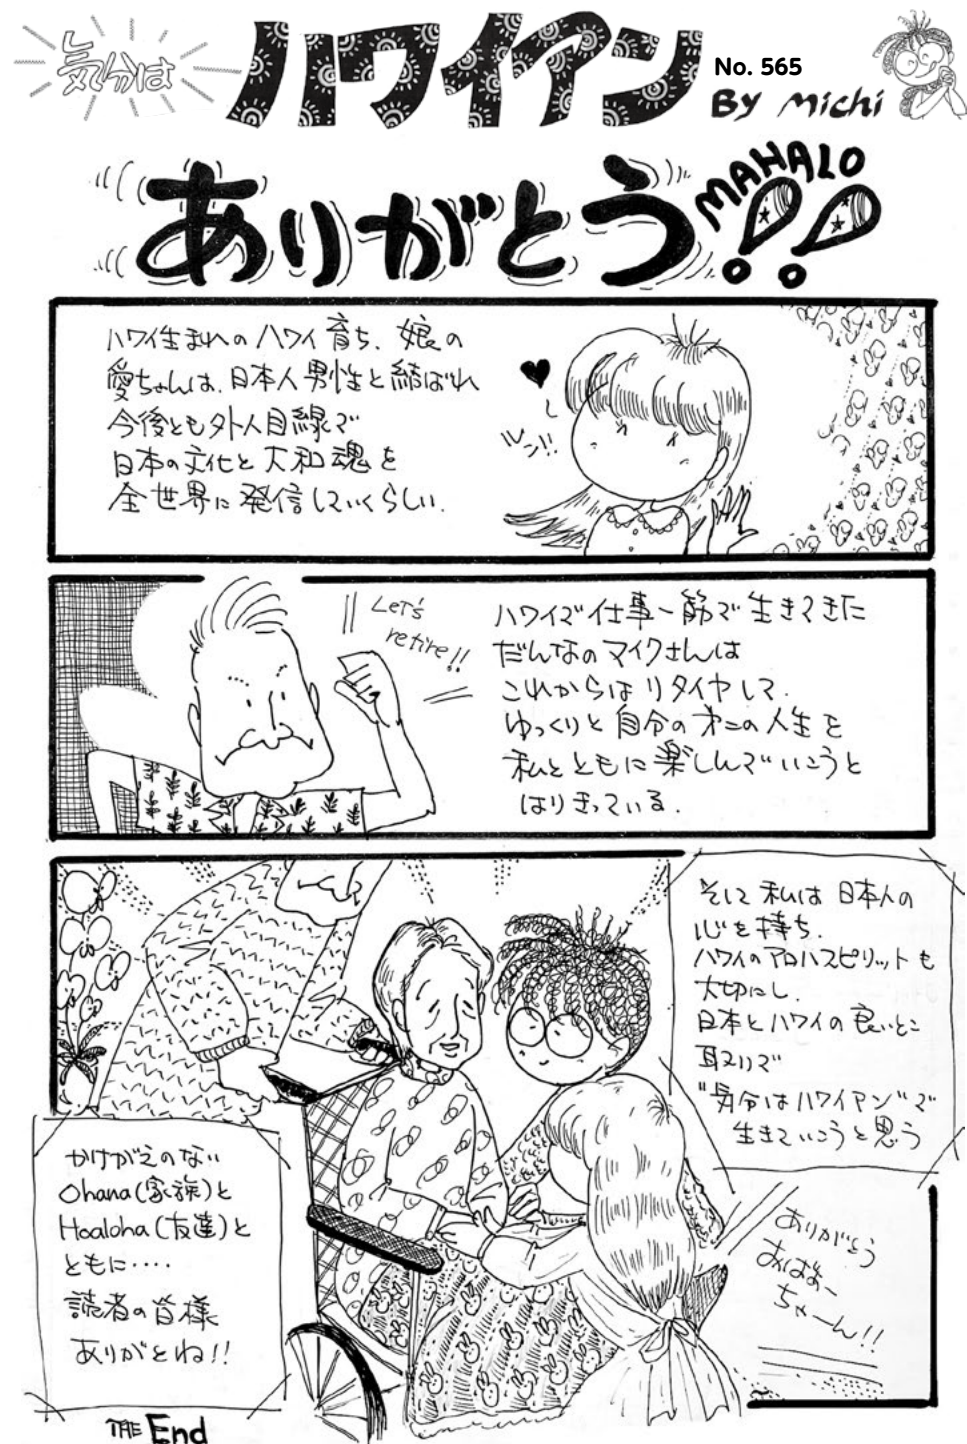 気分は
ハワイアン
No. 565
By Michi
ありがとう!!
MAHALO
ハワイ生まれの ハワイ育ち、娘の
愛ちゃんは、日本人男性と結ばれ
今後とも外人目線で
日本の文化と大和魂を
全世界に発信していくらしい.
ルン!!
Let's
retire!!
ハワイで仕事一筋で生きてきた
だんなのマイクさんは
これからはリタイヤして.
ゆっくりと自分の才二の人生を
私とともに楽しんでいこうと
はりきっている.
そして私は日本人の
心を持ち.
ハワイのアロハスピリットも
大切にし.
日本とハワイの良いとこ
取りで
"気分はハワイアン"で
生きていこうと思う
かけがえのない
Ohana(家族)と
Hoaloha(友達)と
ともに‥‥
読者の皆様
ありがとね!!
ありがとう
おばあー
ちゃーん!!
THE End